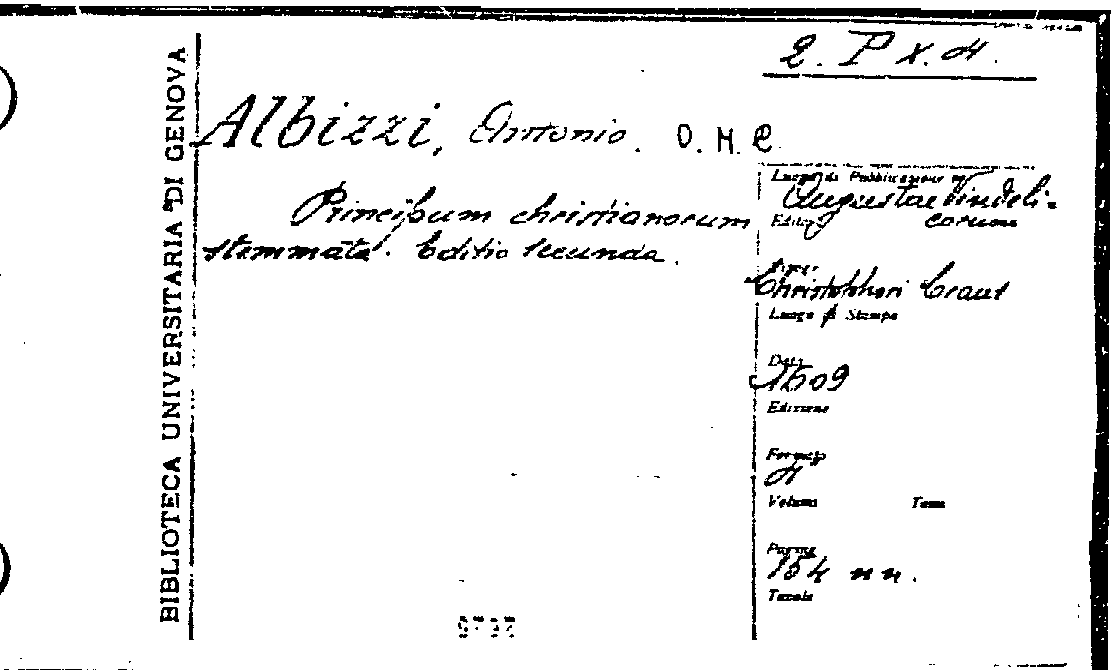 2. P X. 4.
BIBLIOTECA UNIVERSITARIA DI GENOVA
Albizzi, Antonio. O. M. C.
Principum christianorum
stemmata. Editio secunda.
Luogo di Pubblicazione
Augustae Vindeli-
corum
Editore
Tipogr.
Christophori Craus
Luogo di Stampa
Data
1609
Edizione
Formato
4
Volumi Tomi
Pagine
154 nn.
Tavole